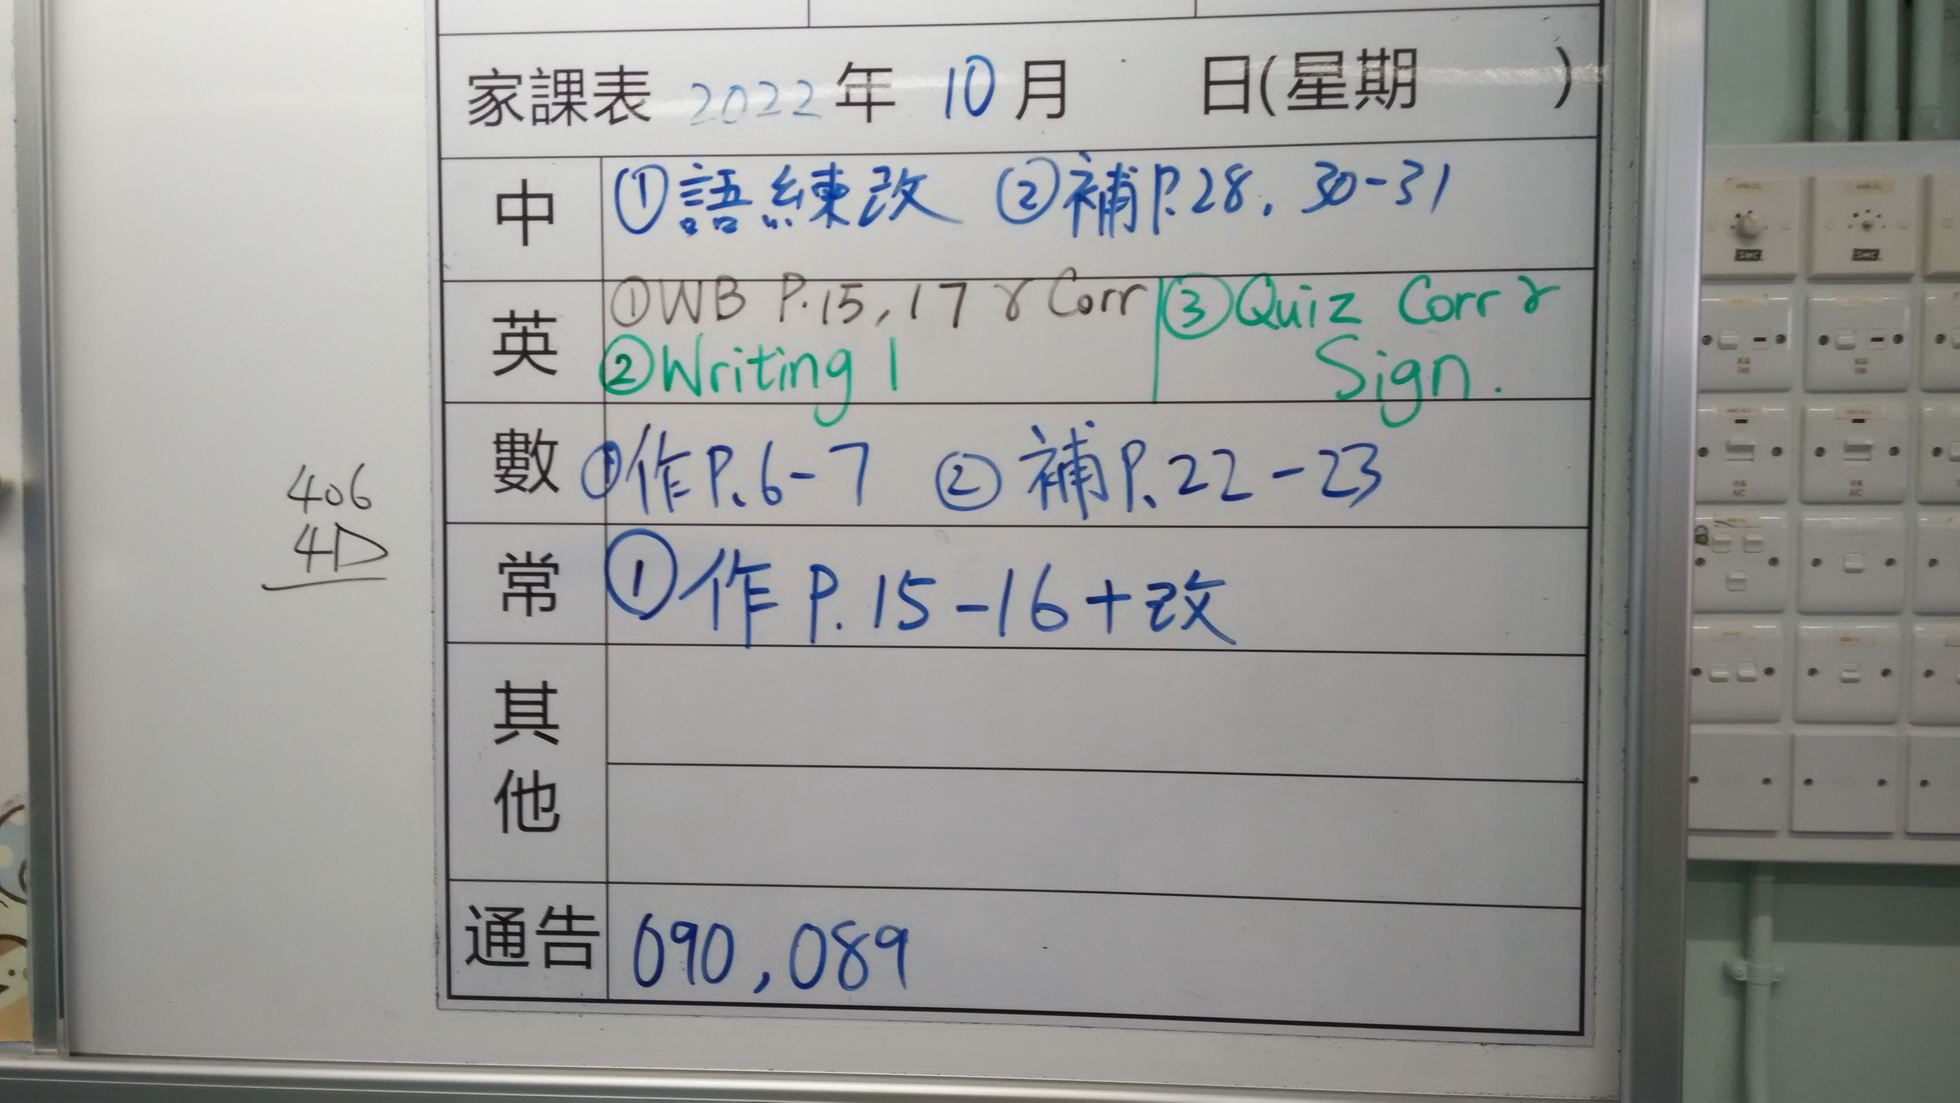 家課表 2022年 10月 日(星期 )
中 ①語練改 ②補P.28, 30-31
英 ①WB P.15, 17 & Corr ③Quiz Corr &
②Writing 1 Sign.
數 ①作P.6-7 ②補P.22-23
406
4D
常 ①作P.15-16+改
其他
通告 090, 089